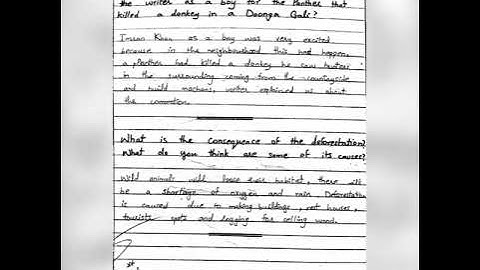 the writer as a boy for the Panther that
killed a donkey in a Doonga Gali?
Imran Khan as a boy was very excited
because in the neighbourhood this had happen
a Panther had killed a donkey he saw hunters
in the surrounding coming from the countryside
and build machans, writer explained us about
the commotion.
What is the consequence of the deforestation?
What do you think are some of its causes?
Wild animals will loose habitat, there will
be a shortage of oxygen and rain. Deforestation
is caused due to making buildings, rest houses,
tourists spots and logging for selling wood.
st